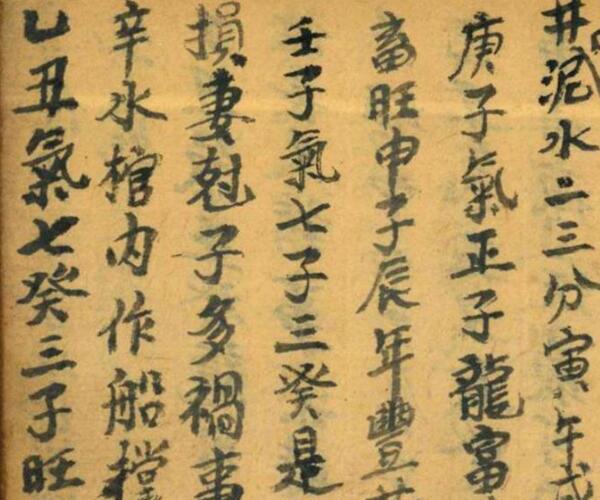 井泥水二三分寅午戌
庚子氣正子龍富
畜旺申子辰年豐
壬子氣七子三癸是
損妻尅子多禍事
辛水棺内作船
乙丑氣七癸三子旺